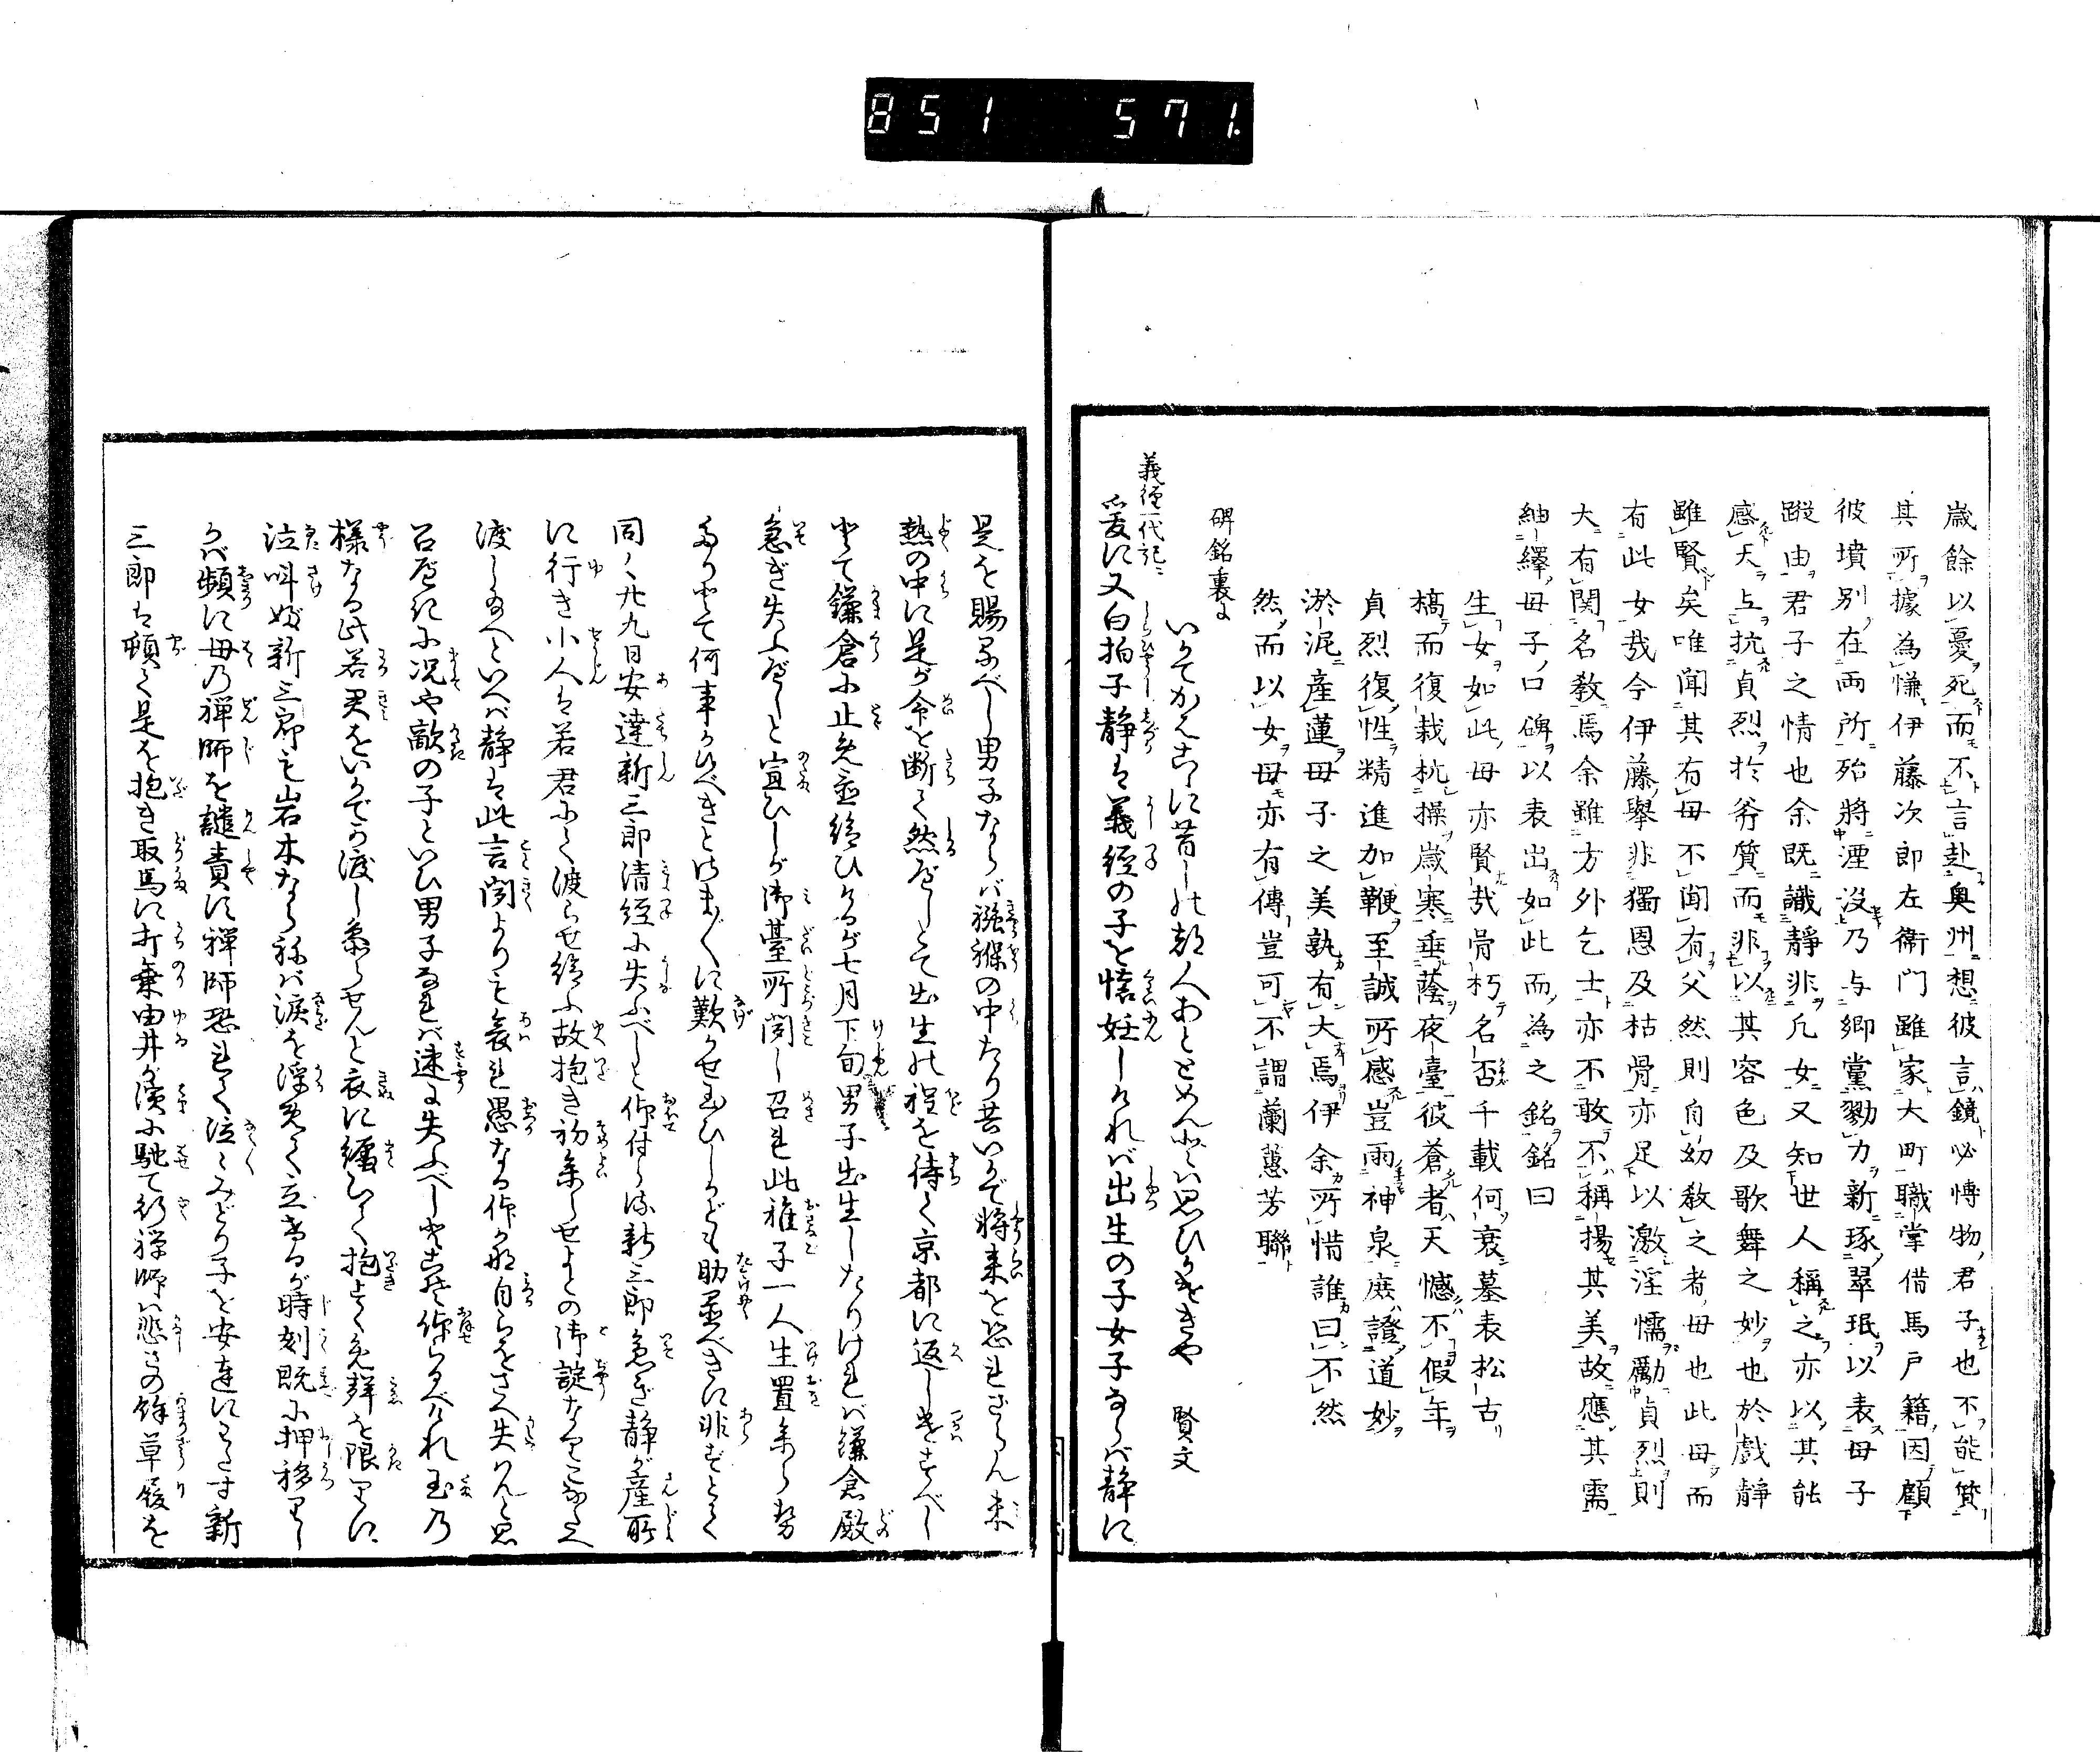 851 571.
歳餘以憂死而不言赴奥州想彼言鏡必博物君子也不能質
其所據為慊伊藤次郎左衛門雖家大町職掌借馬戸籍因顧
彼墳別在両所殆將湮没乃与郷黨勠力新琢翠珉以表母子
蹤由君子之情也余既識静非凡女又知世人稱之亦以其能
感天与抗貞烈於斧質而非以其容色及歌舞之妙也於戯静
雖賢矣唯聞其有母不聞有父然則自幼教之者母也此母而
有此女哉今伊藤擧非獨恩及枯骨亦足以激淫懦勵貞烈則
大有関名教焉余雖方外乞士亦不敢不稱揚其美故應其需
紬繹母子口碑以表出如此而為之銘銘曰
生女如此母亦賢哉骨朽名否千載何衰墓表松古
槁而復栽杭操歳寒垂蔭夜臺彼蒼者天憾不假年
貞烈復性精進加鞭至誠所感豈雨神泉庭證道妙
淤泥産蓮母子之美孰有大焉伊余所惜誰曰不然
然而以女母亦有傳豈可不謂蘭蕙芳聯
碑銘裏よ
いかてかはるに昔しの都人あととめんとハ思ひかけきや 賢文
義徑一代記ニ
爰に又白拍子静は義経の子を懐妊しければ出生の子女子ならば静に
是を賜るべし男子ならバ襁褓の中たり共いかで將来を恐れざらん未
熟の中に是が命を断て然べしとて出生の程を待て京都に返しまこすべし
とて鎌倉に止め置給ひけるが七月下旬男子出生したりければ鎌倉殿
急ぎ失ふべしと宣ひしが御臺所聞し召れ此稚子一人生置参らせ
たりとて何事か候べきとさまざまに歎かせ玉ひしかども助置べきに非ずとて
同く廿九日安達新三郎清経に失ふべしと仰付らる新三郎急ぎ静が産所
に行き小人は若君にて渡らせ給ふ故抱き初参らせよとの御諚なりこなたへ
渡し玉へといへば静は此言聞よりも哀れ愚なる仰かな自らをさへ失はんと思
召はずに况や敵の子といひ男子なれば速に失ふべしとこそ仰らるべけれ玉の
様なる此若君をいかでか渡し参らせんと衣に纏ひて抱よくめ群を限りに
泣叫ぶ新三郎も岩木ならねば涙を浮めて立けるが時刻既に押移りし
かば頻に母の禅師を譴責に禅師恐れて泣々みどり子を安達にわたす新
三郎は頓て是を抱き取馬に打乗由井が濱に馳て行禅師ハ悲さの餘草履を